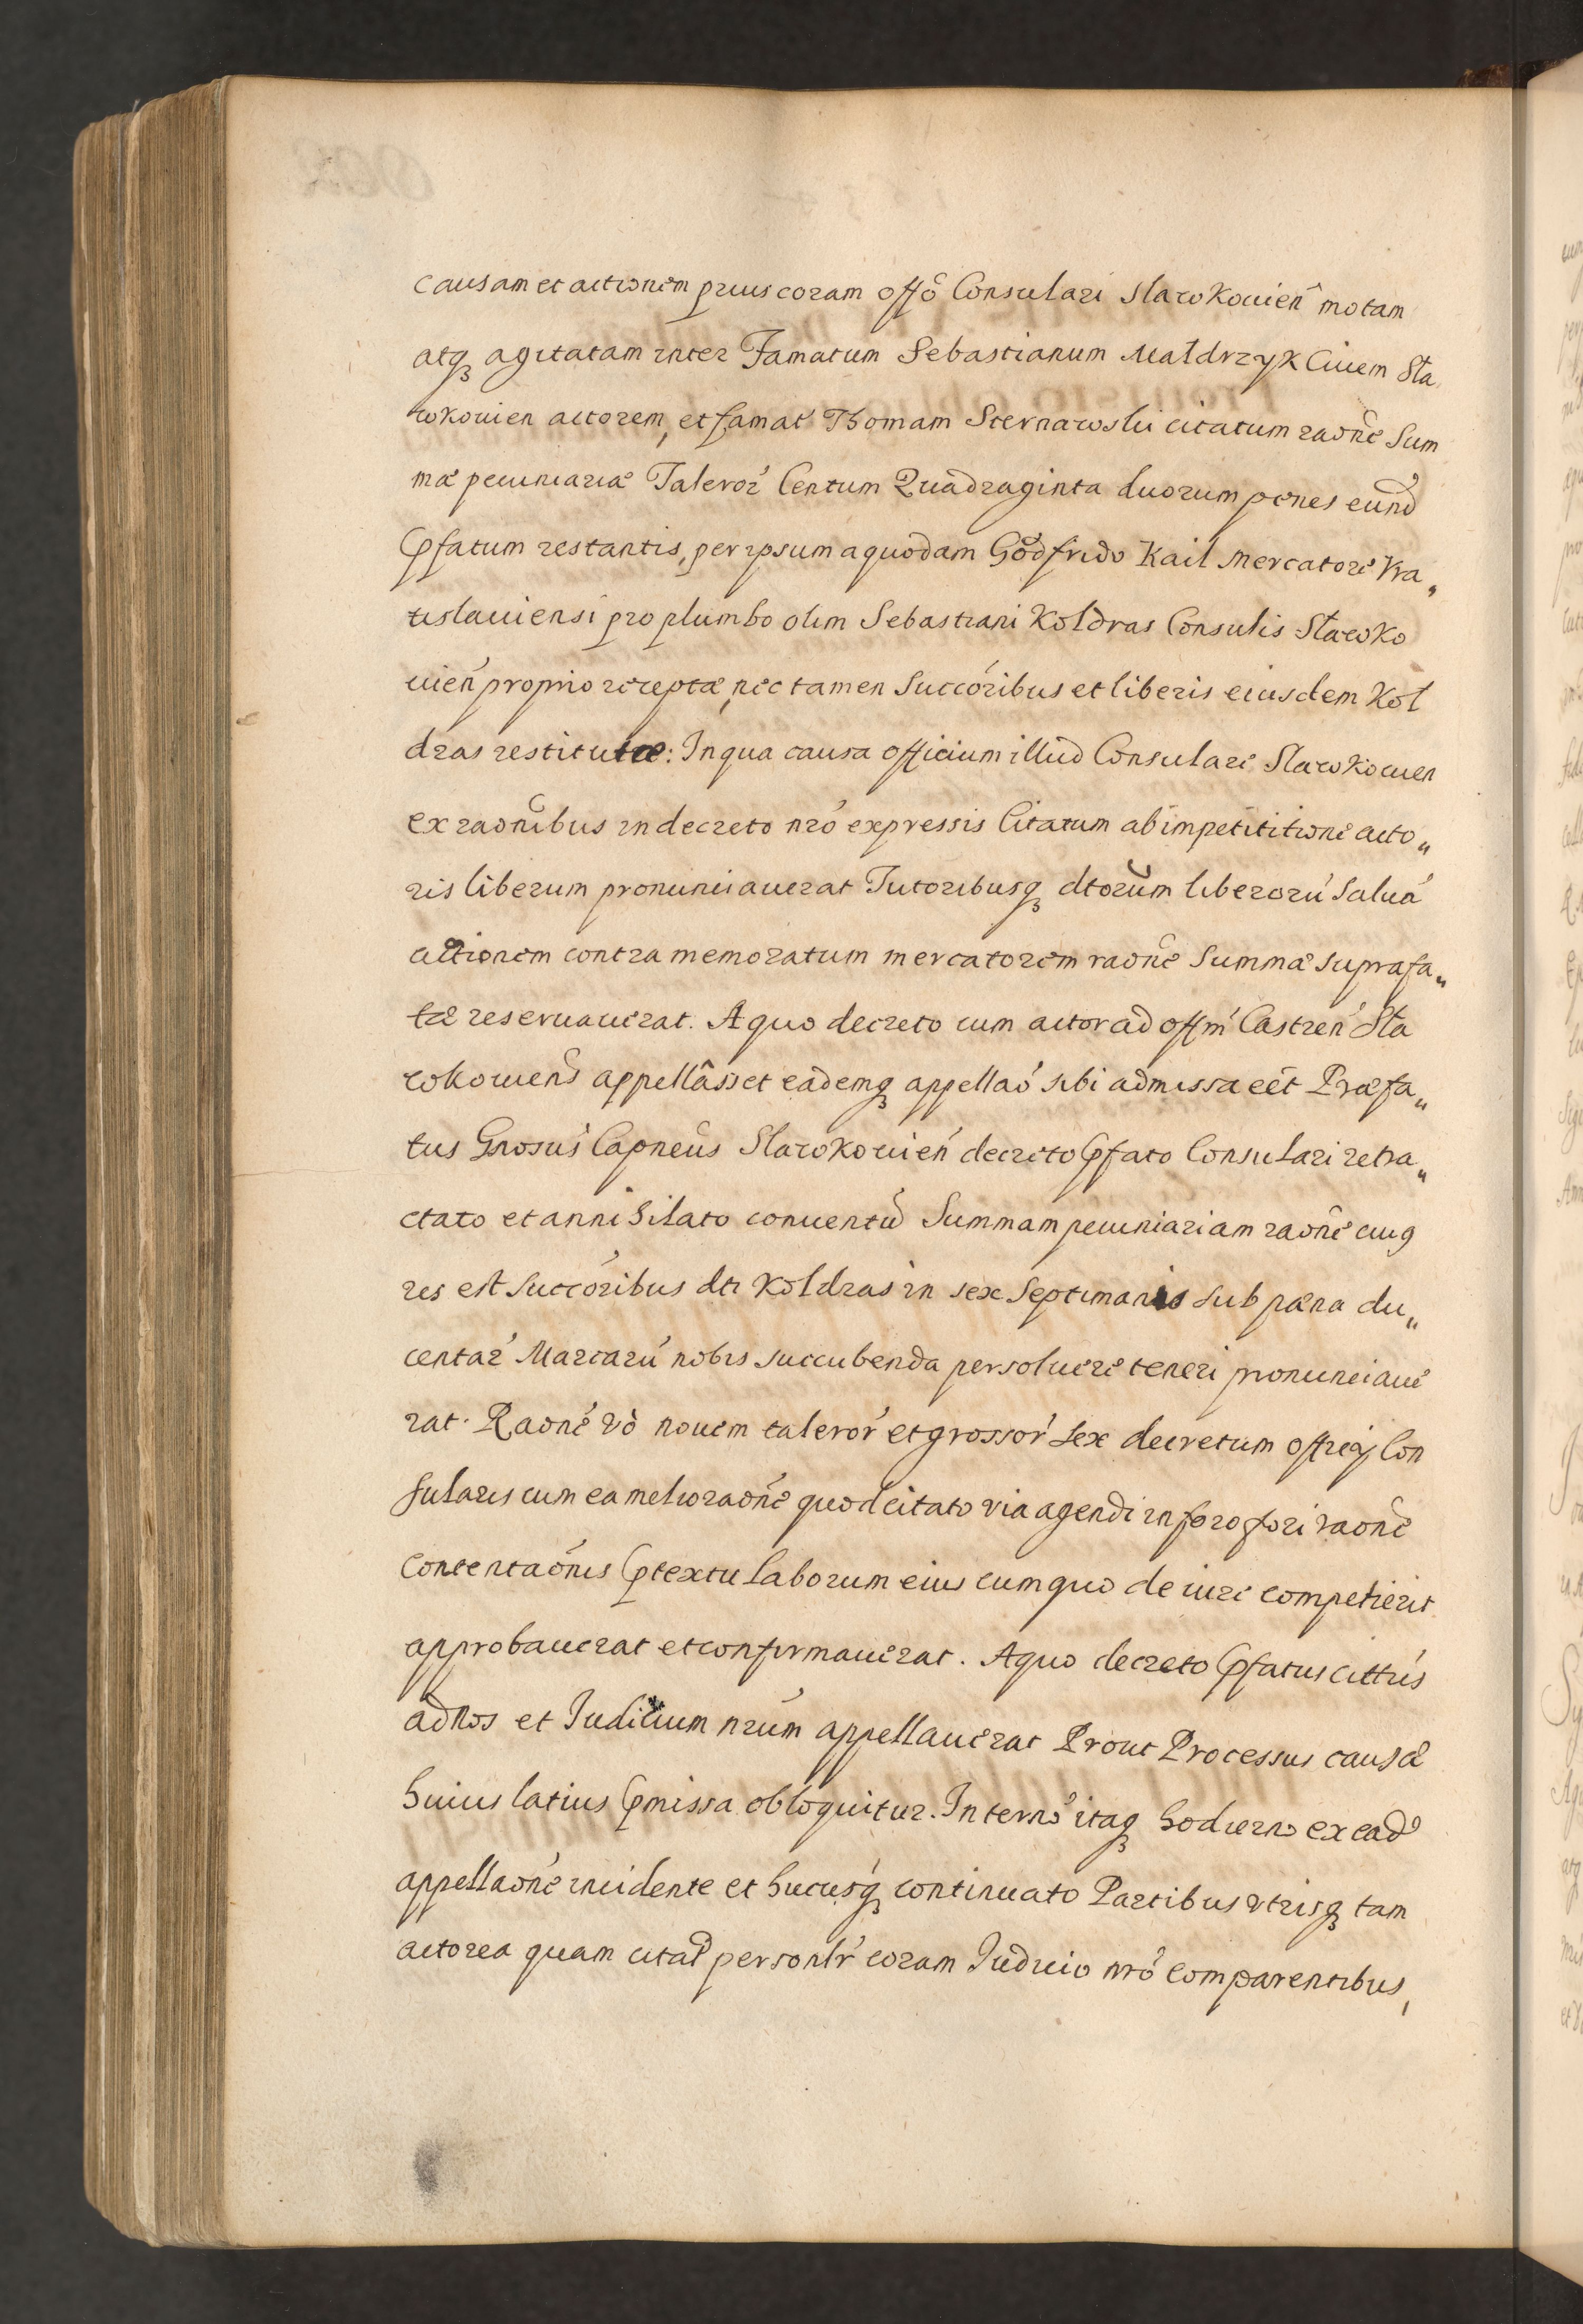 causam et actionem prius coram offõ Consulari Slawkouień motam
atq₃ agitatam inter Famatum Sebastianum Małdrzyk Ciuem Sła
wkouien actorem, et famat Thomam Sternawski citatum raõne Sum
mæ pecuniariæ Taleror Centum Quadraginta duorum penes eund
Pfatum restantis, per ipsum a quodam Godfrido Kail Mercatore Vra„
tislauiensi pro plumbo olim Sebastiani Koldras Consulis Sławko
uień proprio receptæ, nec tamen Succóribus et liberis eiusdem Kol
dras restitutæ: In qua causa officium illud Consulare Slawkouien
ex raonibus in decreto nró expressis Citatum ab impetititione acto„
ris liberum pronunciauerat Tutoribusq₃ dtorum liberorú saluá
actionem contra memoratum mercatorem raoñe Summæ suprafa„
tæ reseruauerat. A quo decreto cum actor ad offm Castreń Sła
wkouiens appellâsset eademq₃ appellaó sibi admissa eét Præfa„
tus Gnosus Capneus Slawkouień decreto Pfato Consulari retra„
ctato et annihilato conuentũ Summam pecuniariam raone cuiꝯ
res est Succóribus dti Koldras in sex Septimanis sub pæna du„
centar Marcarú nobis succubenda persoluere teneri pronunciaue
rat. Raoné vò nouem taleror et grossor sex decretum officij Con
sularis cum ea melioraoñe quod citato via agendi in foro fori raoñe
contentaónis Ptextu laborum eius cum quo de iure competierit
approbauerat et confirmauerat. A quo decreto Pfatus cittus
ad Nos et Iudicium nrúm appellauerat Prout Processus causæ
huius latius Pmissa obloquitur. In termõ itaq₃ hodierno ex ead
appellaoné incidente et hucusq₃ continuato Partibus vtrisq₃ tam
actorea quam citat personlr coram Iudicio nró comparentibus,